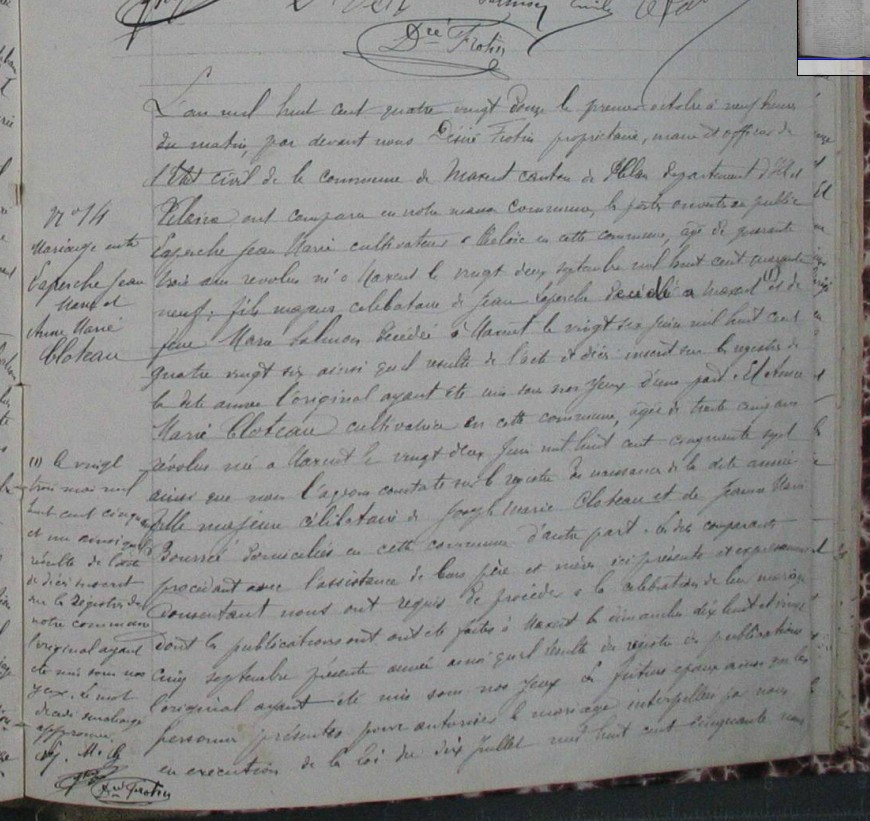 Dré Frotin
L'an mil huit cent quatre vingt douze le premier octobre à neuf heures
du matin, par devant nous Désiré Frotin propriétaire, maire et officier de
l'état civil de la commune de Maxent canton de Plélan département d'Ille et
Vilaine ont comparu en notre maison commune, les portes ouvertes au public
Laperche Jean Marie cultivateur à en cette commune, âgé de quarante
trois ans revolus né à Maxent le vingt deux septembre mil huit cent quarante
neuf, fils majeur celibataire de Jean Laperche décédé à Maxent (1) et de
feue Marie Salmon décédée à Maxent le vingt six juin mil huit cent
quatre vingt six ainsi qu'il resulte de l'acte de décès inscrit sur le registre de
la dite année l'original ayant été mis sous nos yeux d'une part. Et Anne
Marie Cloteau cultivatrice en cette commune, âgée de trente cinq ans
révolus née à Maxent le vingt deux juin mil huit cent cinquante sept
ainsi que nous l'avons constaté sur le registre de naissance de la dite année
fille majeure célibataire de Joseph Marie Cloteau et de Jeanne Marie
domiciliés en cette commune d'autre part. Les dits comparants
procédant avec l'assistance de leurs père et mère ici présents et expressement
consentant nous ont requis de procéder à la célébration de leur mariage
dont les publications ont été faites à Maxent les dimanches dix huit et vingt
cinq septembre présente année ainsi qu'il résulte du registre de publications
l'original ayant été mis sous nos yeux les futurs epoux ainsi que les
personnes présentes pour autoriser le mariage interpellés par nous
en execution de la loi du dix juillet mil huit cent cinquante
N° 14
Mariage entre
Laperche Jean
Marie et
Anne Marie
Cloteau
(1) le vingt
trois mai mil
huit cent cinquante
et un ainsi qu'il
résulte de l'acte
de décès inscrit
sur le Régistre de
notre commune
l'original ayant
été mis sous nos
yeux. Le mot
décédé surchargé
approuvé.
Dré Frotin